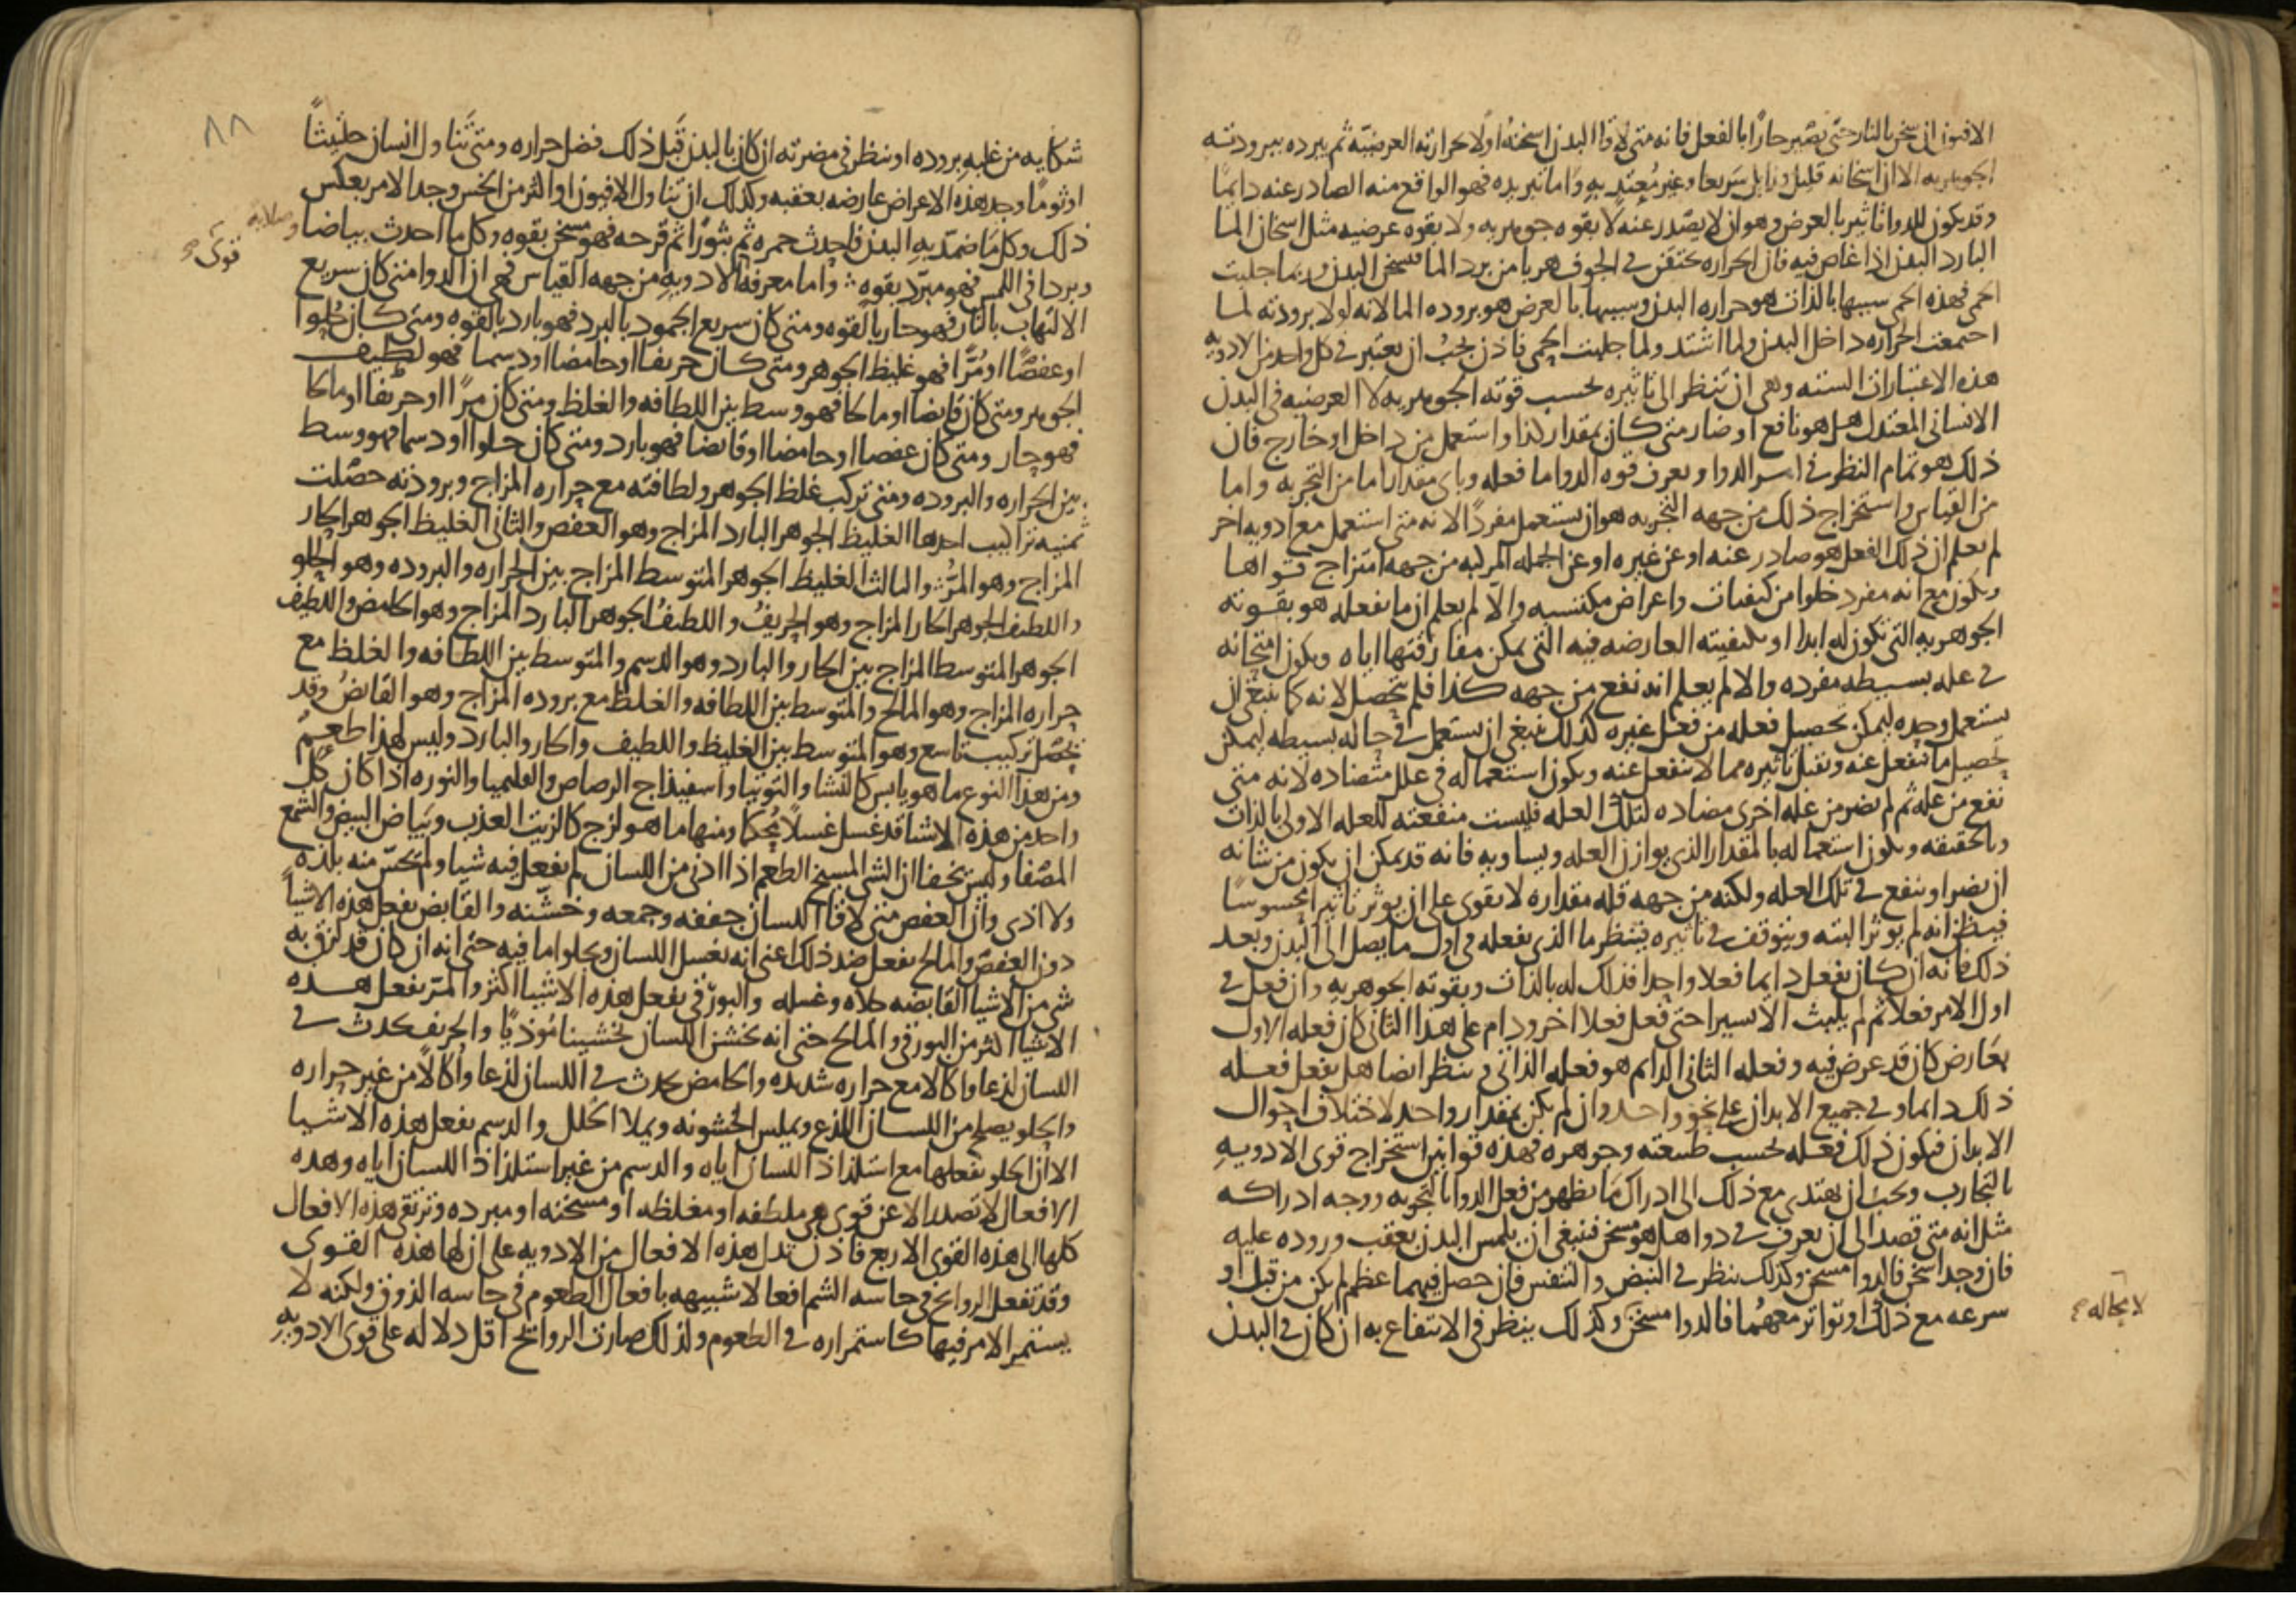 الافيون ان سخن بالنار حتى يصير حارا بالفعل فانه متى لاقا البدن اسخنه اولا بحرارته العرضيه ثم يبرده ببرودته
الجوهريه الا ان اسخانه قليل وزايل سريعا وغير معتد به واما تبريده فهو الواقع منه الصادر عنه دايما
وقد يكون للدوا تاثير بالعرض وهو ان لا يصدر عنه لا بقوه جوهريه ولا بقوه عرضيه مثل اسخان الما
البارد البدن اذا غاص فيه فان الحراره تحتقن في الجوف هربا من برد الما فتسخن البدن وربما جلبت
الحمى فهذه الحمى سببها بالذات هو حراره البدن وسببها بالعرض هو بروده الما لانه لولا برودته لما
اجتمعت الحراره داخل البدن ولما اشتد ولما جلبت الحمى فاذن يجب ان يعتبر في كل واحد من الادويه
هذه الاعتبارات السته وهي ان تنظر الى تاثيره بحسب قوته الجوهريه لا العرضيه في البدن
الانساني المعتدل هل هو نافع او ضار متى كان بمقدار كذا واستعمل من داخل او خارج فان
ذلك هو تمام النظر في امر الدوا وتعرف قوه الدوا ما فعله وباي مقدار اما من التجربه واما
من القياس واستخراج ذلك من جهه التجربه هو ان يستعمل مفردا لانه متى استعمل مع ادويه اخر
لم يعلم ان ذلك الفعل هو صادر عنه او عن غيره او عن الجمله المركبه من جهه امتزاج قواها
ويكون مع انه مفرد خلوا من كيفيات واعراض مكتسبه والا لم يعلم ان ما يفعله هو بقوته
الجوهريه التي تكون له ابدا او بكيفيته العارضه فيه التي يمكن مفارقتها اياه ويكون امتحانه
في عله بسيطه مفرده والا لم يعلم انه نفع من جهه كذا فلم يتحصل لانه كما ينبغي ان
يستعمل وحده ليمكن تحصيل فعله من فعل غيره كذلك ينبغي ان يستعمل في حاله بسيطه ليمكن
تحصيل ما ينفعل عنه ويقبل تاثيره مما لا ينفعل عنه ويكون استعماله في علل متضاده لانه متى
نفع من عله ثم لم يضر من عله اخرى مضاده لتلك العله فليست منفعته للعله الاولى بالذات
وبالحقيقه ويكون استعماله بالمقدار الذي يوازن العله ويساويه فانه قد يمكن ان يكون من شانه
ان يضر او ينفع في تلك العله ولكنه من جهه قله مقداره لا يقوى على ان يوثر تاثيرا محسوسا
فيظن انه لم يوثر البته ويتوقف في تاثيره فينظر ما الذي يفعله في اول ما يصل الى البدن وبعد
ذلك فانه ان كان يفعل دايما فعلا واحدا فذلك له بالذات وبقوته الجوهريه وان فعل في
اول الامر فعلا ثم لم يلبث الا يسيرا حتى فعل فعلا اخر ودام على هذا الثاني كان فعله الاول
بعارض كان قد عرض فيه وفعله الثاني الدايم هو فعله الذاتي وينظر ايضا هل يفعل فعله
ذلك دايما وفي جميع الابدان على نحو واحد وان لم يكن بمقدار واحد لاختلاف احوال
الابدان فيكون ذلك فعله بحسب طبيعته وجوهره فهذه قوانين استخراج قوى الادويه
بالتجارب ويجب ان يهتدي مع ذلك الى ادراك ما يظهر من فعل الدوا بالتجربه ووجه ادراكه
مثل انه متى قصد الى ان يعرف في دوا هل هو مسخن فينبغي ان يلمس البدن بعقب وروده عليه
فان وجد اسخن فالدوا مسخن وكذلك ينظر في النبض والتنفس فان حصل فيهما عظم لم يكن من قبل او
سرعه مع ذلك او تواتر معهما فالدوا مسخن وكذلك ينظر في الانتفاع به ان كان في البدن
لا محاله صح
٨٨
شكايه من غلبه بروده او ينظر في مضرته ان كان بالبدن قبل ذلك فضل حراره ومتى تناول انسان حلتيثا
او ثوما وجد هذه الاعراض عارضه بعقبه وكذلك ان تناول الافيون او اكثر من الخس وجد الامر بعكس
ذلك وكل ما ضمد به البدن فاحدث حمره ثم بثورا ثم قرحه فهو مسخن بقوه وكل ما احدث بياضا
وصلابه
قوى صح
وبردا في اللمس فهو مبرد بقوه واما معرفه الادويه من جهه القياس فهي ان الدوا متى كان سريع
الالتهاب بالنار فهو حار بالقوه ومتى كان سريع الجمود بالبرد فهو بارد بالقوه ومتى كان حلوا
او عفصا او مرا فهو غليظ الجوهر ومتى كان حريفا او حامضا او دسما فهو لطيف
الجوهر ومتى كان قابضا او مالحا فهو وسط بين اللطافه والغلظ ومتى كان مرا او حريفا او مالحا
فهو حار ومتى كان عفصا او حامضا او قابضا فهو بارد ومتى كان حلوا او دسما فهو وسط
بين الحراره والبروده ومتى تركب غلظ الجوهر ولطافته مع حراره المزاج وبرودته حصلت
ثمنيه تراكيب احدها الغليظ الجوهر البارد المزاج وهو العفص والثاني الغليظ الجوهر الحار
المزاج وهو المر والثالث الغليظ الجوهر المتوسط المزاج بين الحراره والبروده وهو الحلو
واللطيف الجوهر الحار المزاج وهو الحريف واللطيف الجوهر البارد المزاج وهو الحامض واللطيف
الجوهر المتوسط المزاج بين الحار والبارد وهو الدسم والمتوسط بين اللطافه والغلظ مع
حراره المزاج وهو المالح والمتوسط بين اللطافه والغلظ مع بروده المزاج وهو القابض وقد
يحصل تركيب تاسع وهو المتوسط بين الغليظ واللطيف والحار والبارد وليس لهذا طعم
ومن هذا النوع ما هو يابس كالنشا والتوتيا واسفيذاج الرصاص والقليميا والنوره اذا كان كل
واحد من هذه الاشيا قد غسل غسلا محكما ومنها ما هو لزج كالزيت العذب وبياض البيض والشمع
المصفا وليس يخفا ان الشي المسيخ الطعم اذا ادني من اللسان لم يفعل فيه شيا ولم يحس منه بلذه
ولا اذى وان العفص متى لاقا اللسان جففه وجمعه وخشنه والقابض يفعل هذه الاشيا
دون العفص والمالح يفعل ضد ذلك اعني انه يغسل اللسان ويجلو اما فيه حتى انه ان كان قد لزق به
شي من الاشيا القابضه جلاه وغسله والبورقي يفعل هذه الاشيا اكثر والمر يفعل هذه
الاشيا اكثر من البورقي والمالح حتى انه يخشن اللسان تخشينا موذيا والحريف يحدث في
اللسان لذعا واكالا مع حراره شديده والحامض يحدث في اللسان لذعا واكالا من غير حراره
والحلو يصلح من اللسان اللذع ويملس الخشونه ويملا الخلل والدسم يفعل هذه الاشيا
الا ان الحلو يفعلها مع استلذاذ اللسان اياه والدسم من غير استلذاذ اللسان اياه وهذه
الافعال لا تصدر الا عن قوى هي ملطفه او مغلظه او مسخنه او مبرده وترتقي هذه الافعال
كلها الى هذه القوى الاربع فاذن تدل هذه الافعال من الادويه على ان لها هذه القوى
وقد تفعل الروايح في حاسه الشم افعالا شبيهه بافعال الطعوم في حاسه الذوق ولكنه لا
يستمر الامر فيها كاستمراره في الطعوم ولذلك صارت الروايح اقل دلاله على قوى الادويه